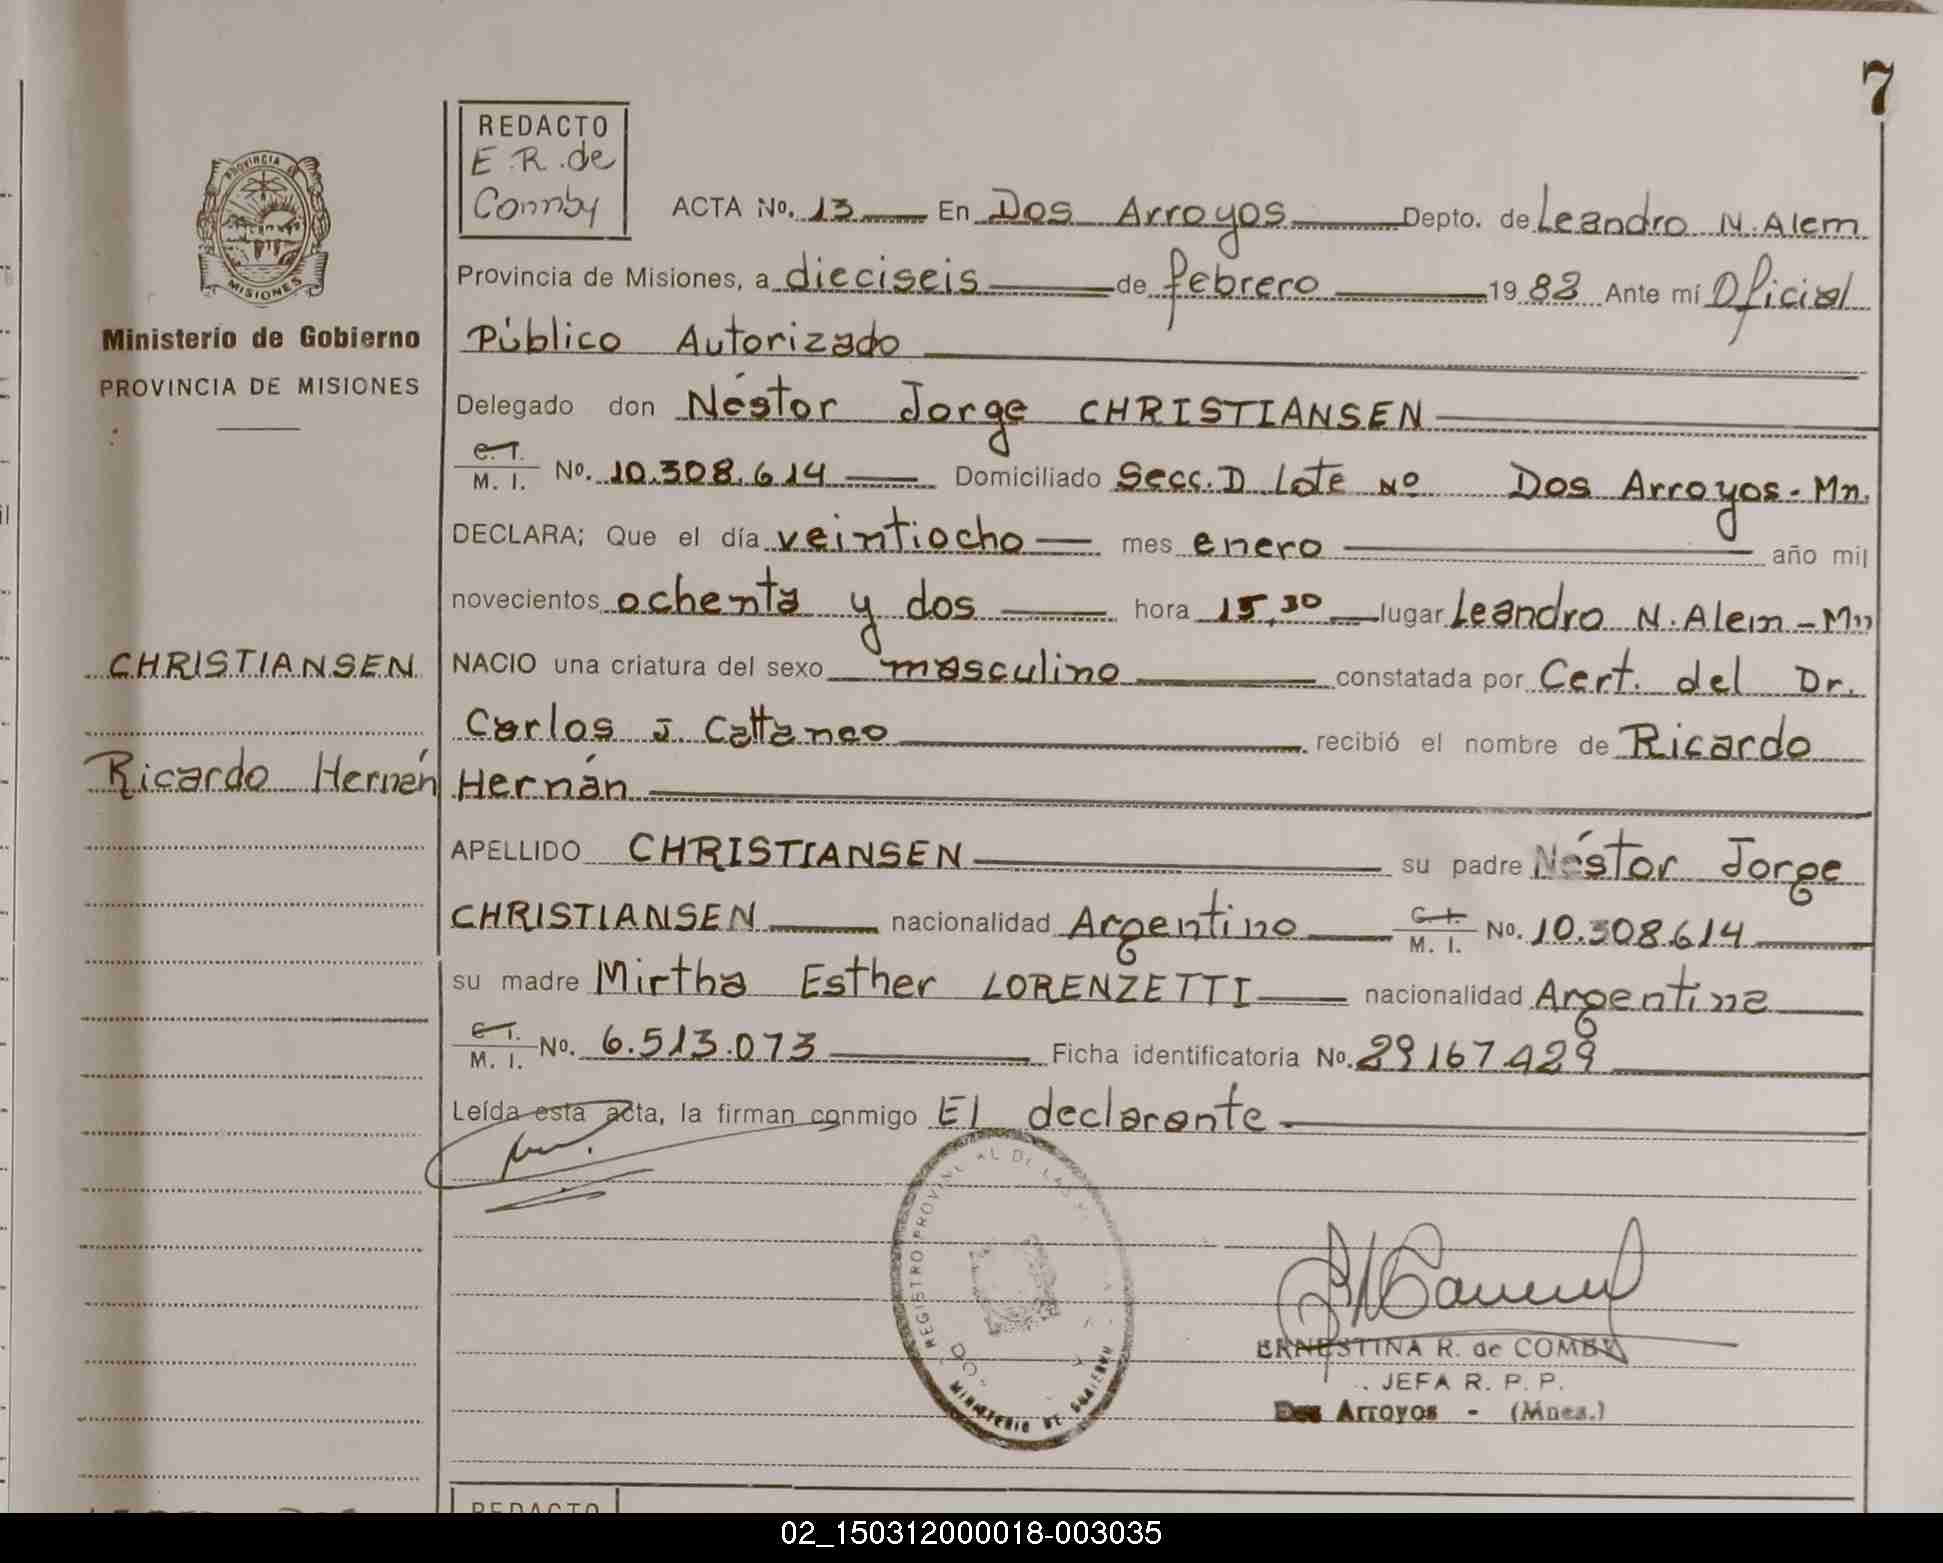 7
REDACTO
E.R. de
Comby
PROVINCIA DE
MISIONES
Ministerio de Gobierno
PROVINCIA DE MISIONES
CHRISTIANSEN
Ricardo Hernán
ACTA No. 13 En Dos Arroyos Depto. de Leandro N. Alem
Provincia de Misiones, a dieciseis de febrero 1982 Ante mí Oficial
Público Autorizado
Delegado don Néstor Jorge CHRISTIANSEN
C. I. M. I. No. 10.308.614 Domiciliado Secc. D Lote Nº Dos Arroyos - Mn.
DECLARA; Que el día veintiocho mes enero año mil
novecientos ochenta y dos hora 15,30 lugar Leandro N. Alem - Mn
NACIO una criatura del sexo masculino constatada por Cert. del Dr.
Carlos J. Cattaneo recibió el nombre de Ricardo
Hernán
APELLIDO CHRISTIANSEN su padre Néstor Jorge
CHRISTIANSEN nacionalidad Argentino C. I. M. I. No. 10.308.614
su madre Mirtha Esther LORENZETTI nacionalidad Argentina
C. I. M. I. No. 6.513.073 Ficha identificatoria No. 29167429
Leída esta acta, la firman conmigo El declarante
REGISTRO PROVINCIAL DE LAS
MINISTERIO DE GOBIERNO
ERNESTINA R. de COMBY
JEFA R. P. P.
Dos Arroyos - (Mnes.)
REDACTO
02_150312000018-003035